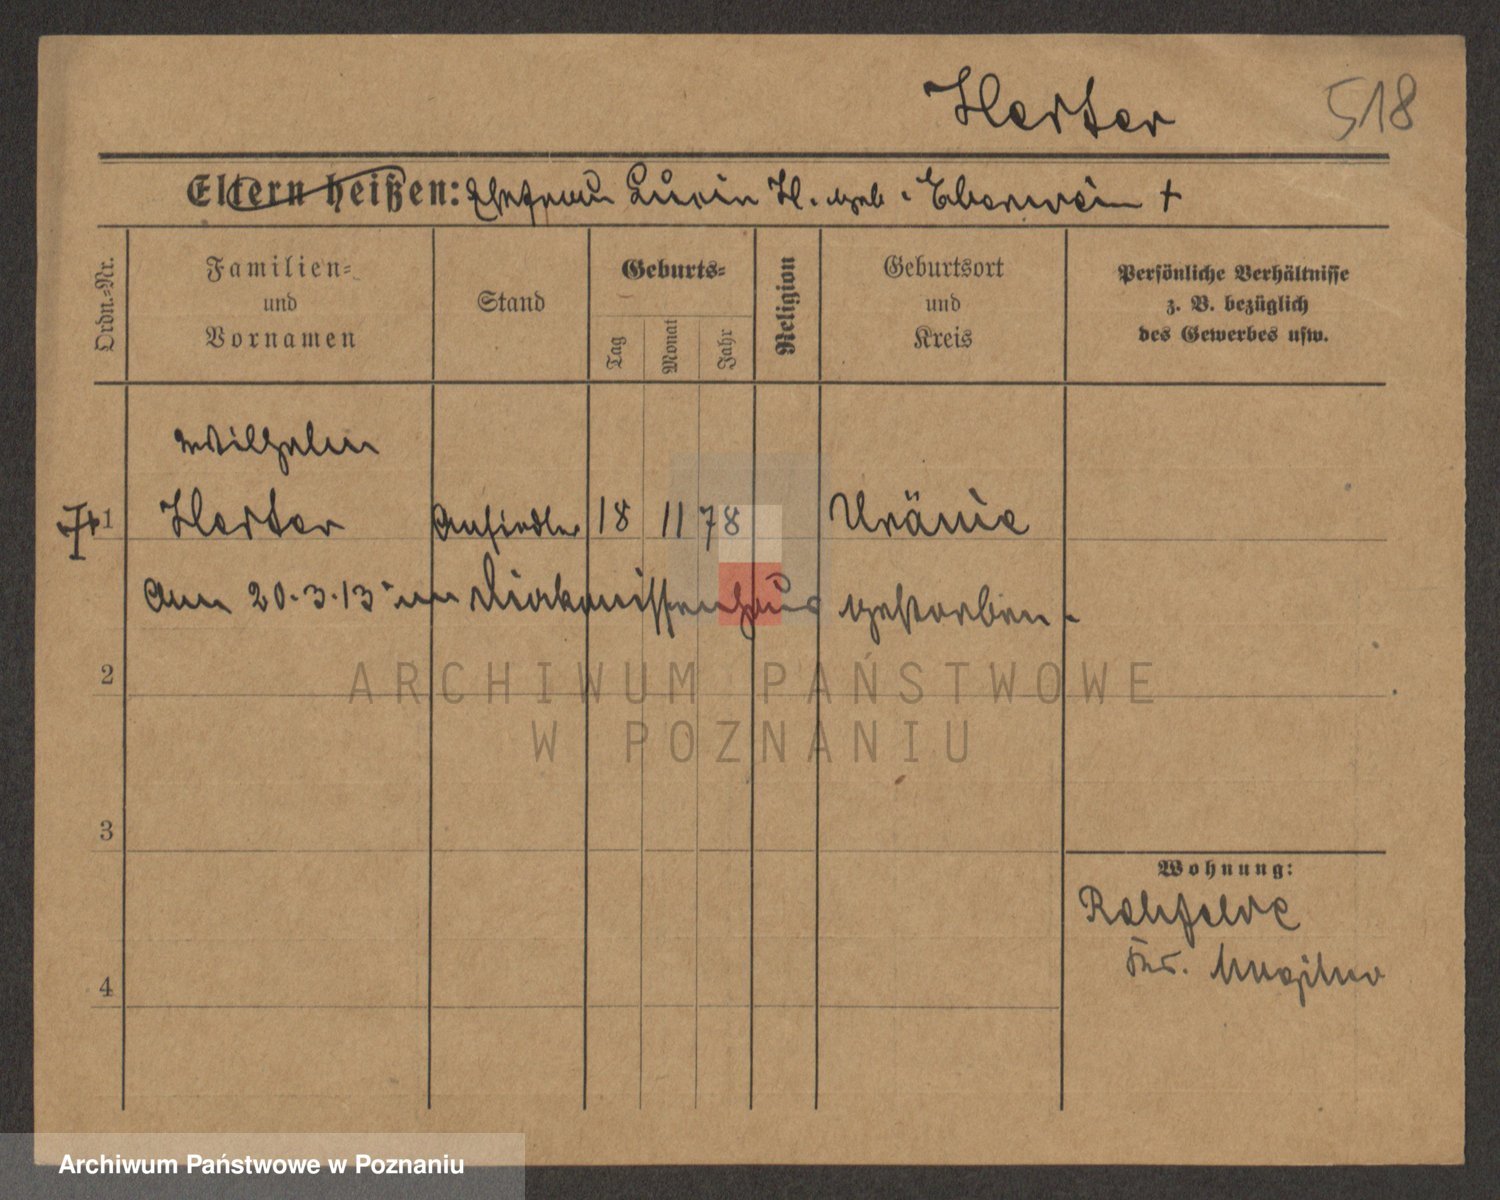 Herter 518
Eltern heißen: Ehefrau Luise H. geb. Eberwein +
Ordn.-Nr.
Familien-
und
Vornamen
Stand
Geburts-
Tag
Monat
Jahr
Religion
Geburtsort
und
Kreis
Persönliche Verhältnisse
z. B. bezüglich
des Gewerbes usw.
Wilhelm
1 Herter Ansiedler 18 11 78 Uränie
Am 20.3.13 im Diakonissenhaus gestorben.
2
ARCHIWUM PAŃSTWOWE
W POZNANIU
3
Wohnung:
Rehfelde
Krs. Mogilno
4
Archiwum Państwowe w Poznaniu